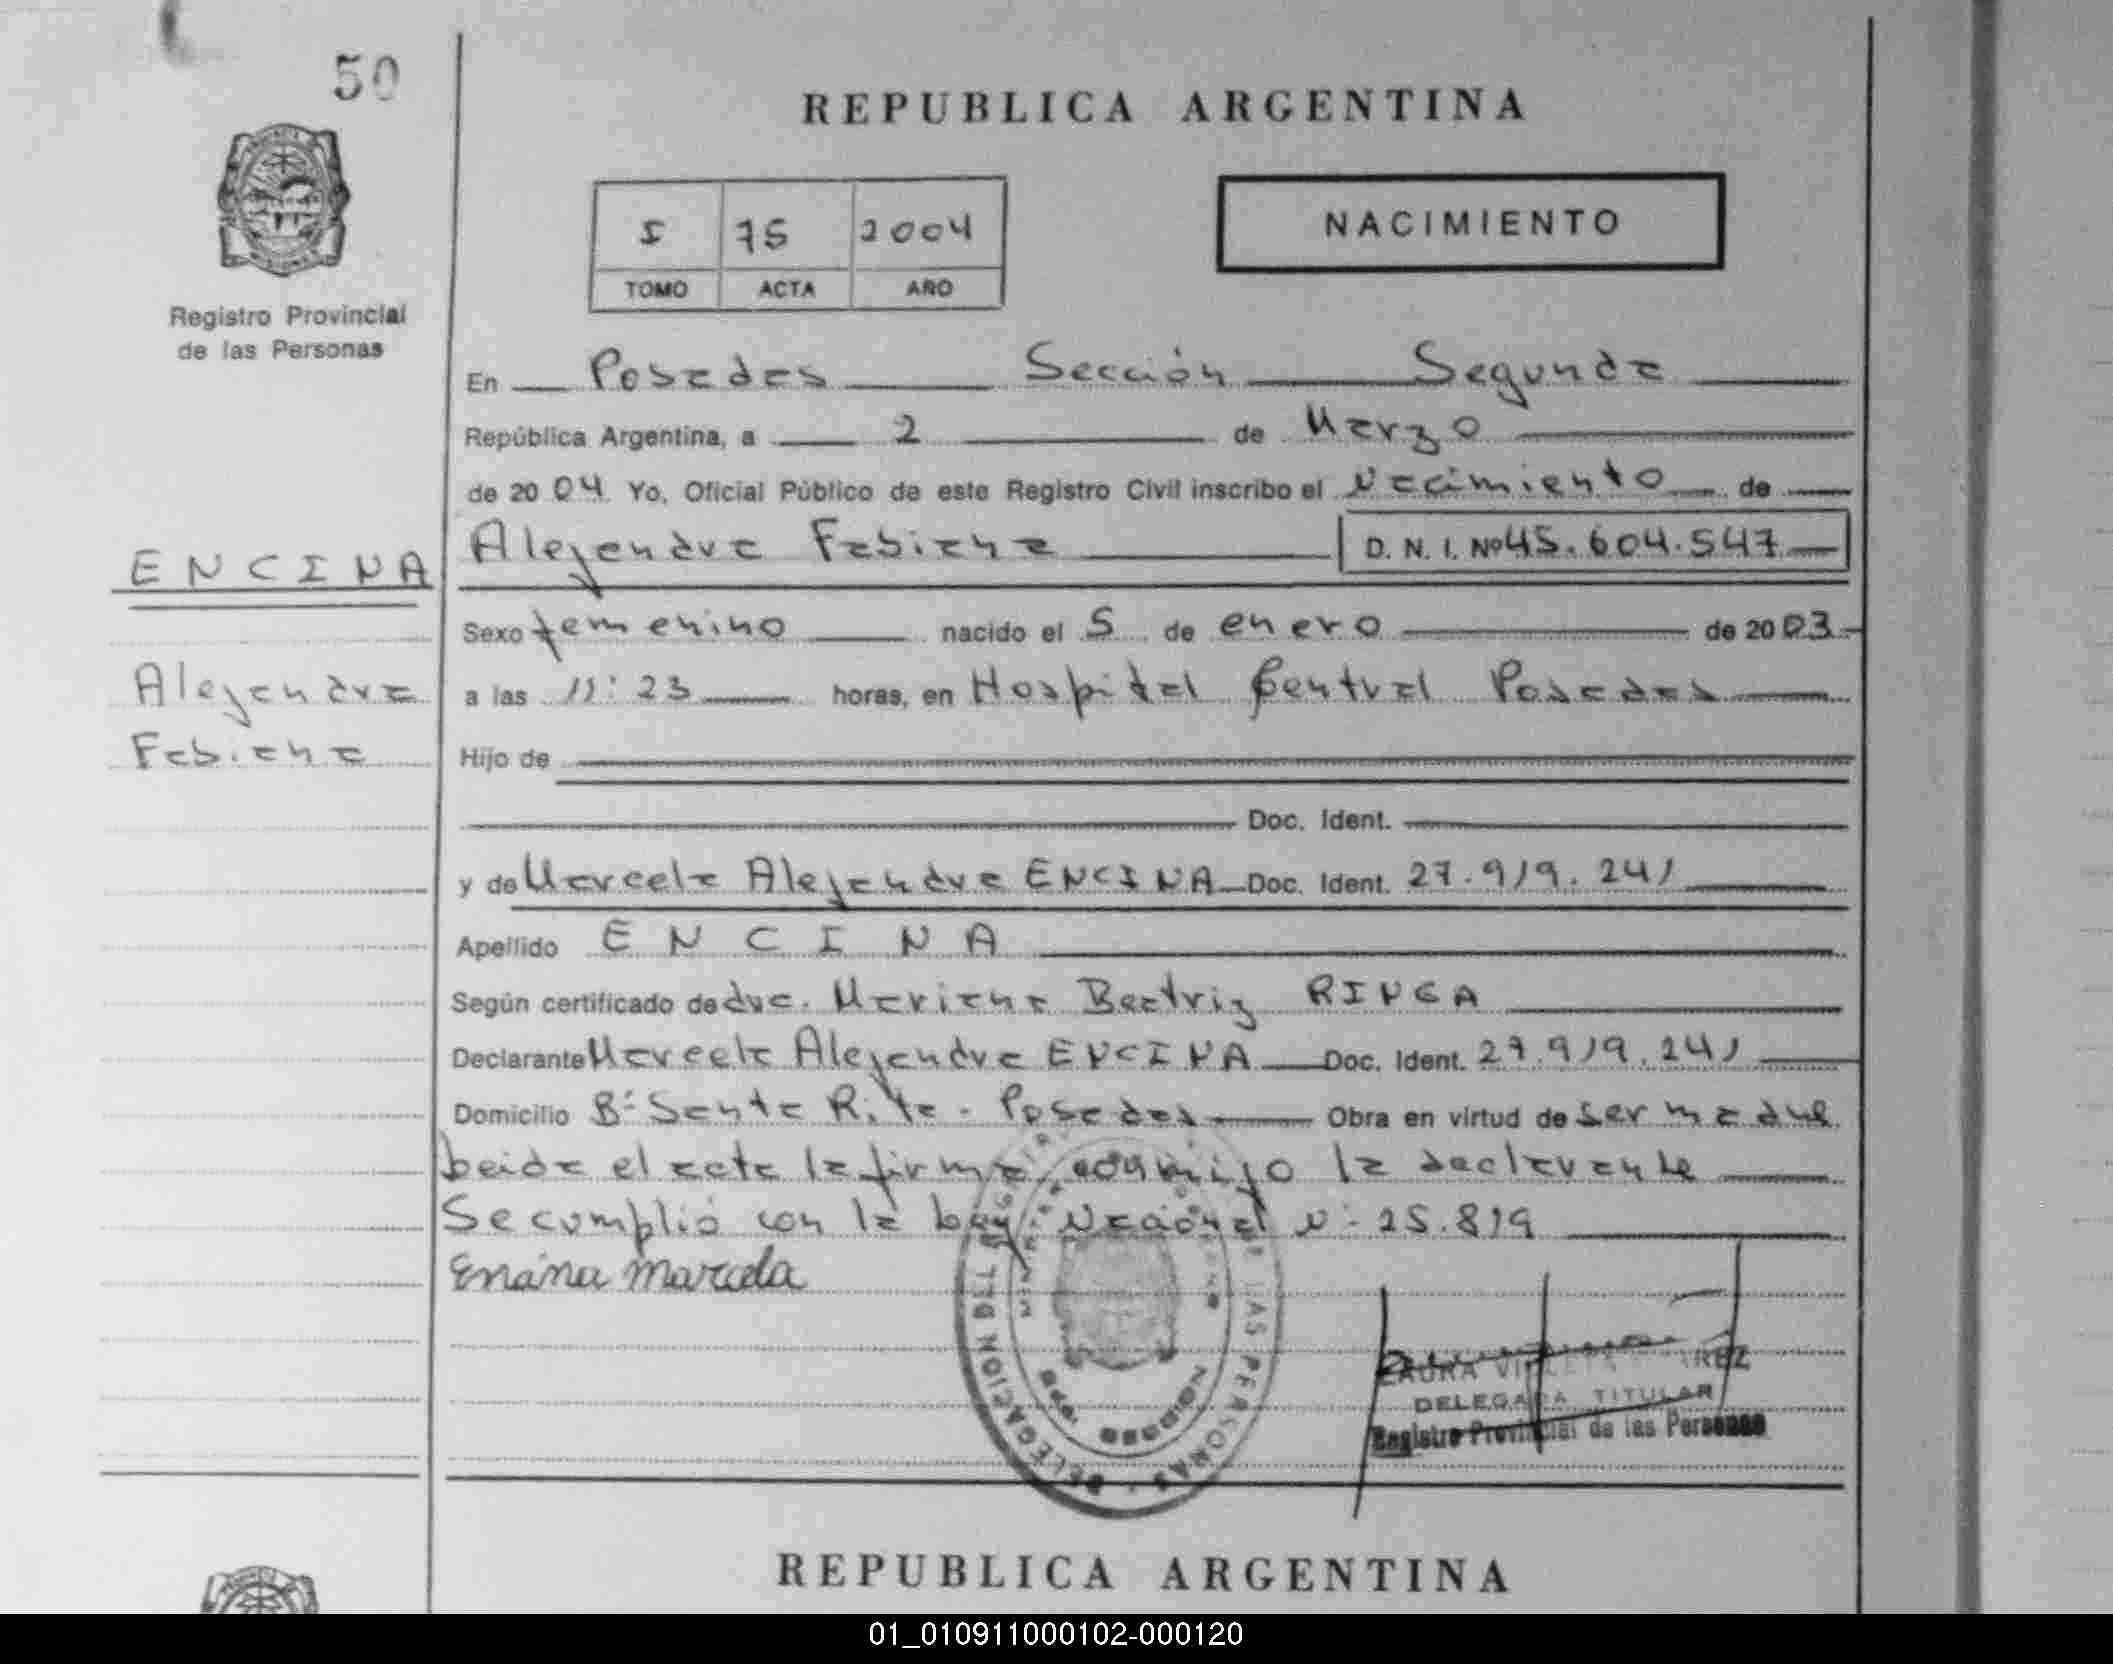 50
REPUBLICA ARGENTINA
I 75 2004
TOMO ACTA AÑO
NACIMIENTO
Registro Provincial
de las Personas
En Posadas Sección Segunda
República Argentina, a 2 de Marzo
de 2004 Yo, Oficial Público de este Registro Civil inscribo el Nacimiento de
ENCINA
Alejandra Fabiana D. N. I. Nº 45.604.547
Sexo femenino nacido el 5 de enero de 2003
Alejandra
Fabiana
a las 11:23 horas, en Hospital Central Posadas
Hijo de
Doc. Ident.
y de Marcela Alejandra ENCINA Doc. Ident. 27.919.241
Apellido ENCINA
Según certificado de dra. Mariana Beatriz
Declarante Marcela Alejandra ENCINA Doc. Ident. 27.919.241
Domicilio Bº Santa Rita - Posadas Obra en virtud de ser madre
Leida el acta la firma conmigo la declarante
Se cumplió con la Ley Nacional Nº 25.819
Encina Marcela
DELEGACION DEL REGISTRO DE LAS PERSONAS
2da. SECCION
LAURA
DELEGADA TITULAR
Registro Provincial de las Personas
REPUBLICA ARGENTINA
01_010911000102-000120